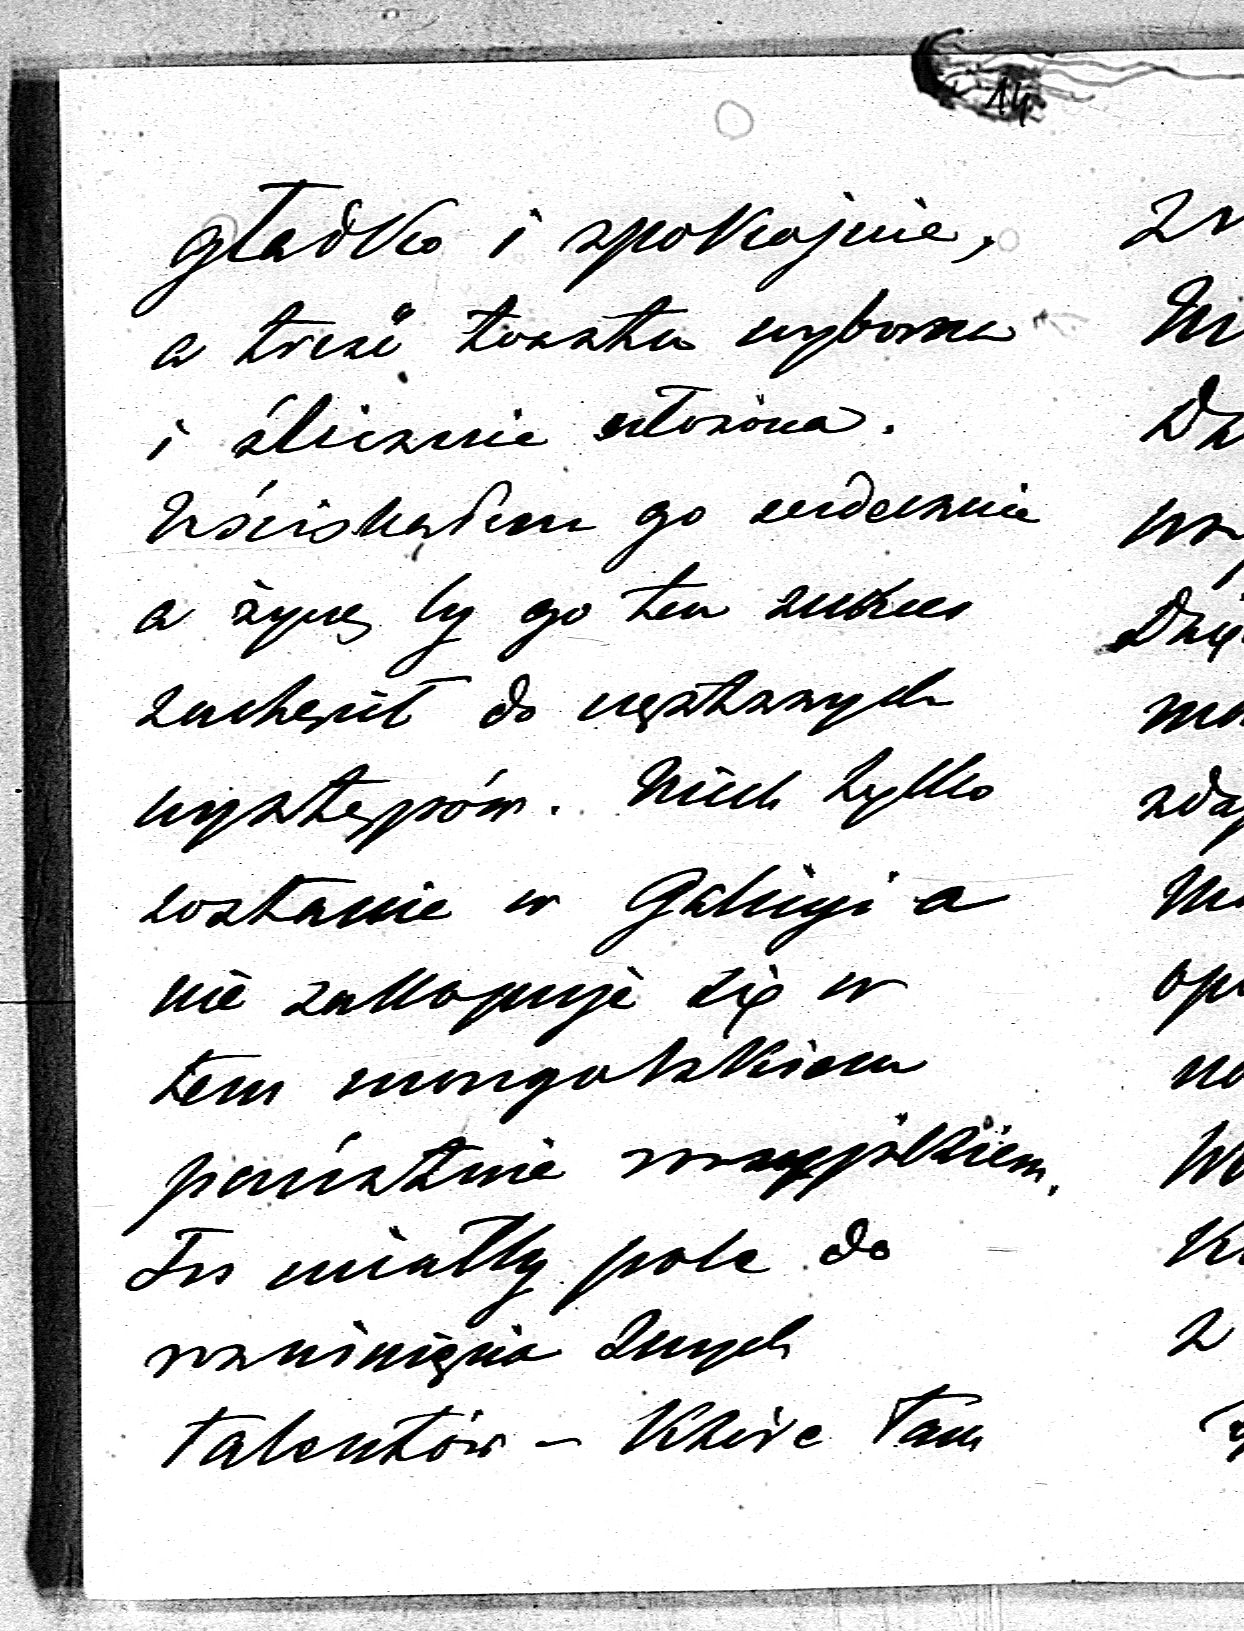 14.
gładko i spokojnie,
a treść toastu wyborna
i ślicznie ułożona.
Uściskałem go serdecznie
a życzę by go ten sukces
zachęcił do częstszych
występów. Niech tylko
zostanie w Galicyi a
nie zakopuje się w
tem mongolskiem
państwie rosyjskiem.
Tu miałby pole do
rozwinięcia swych
talentów – które tam